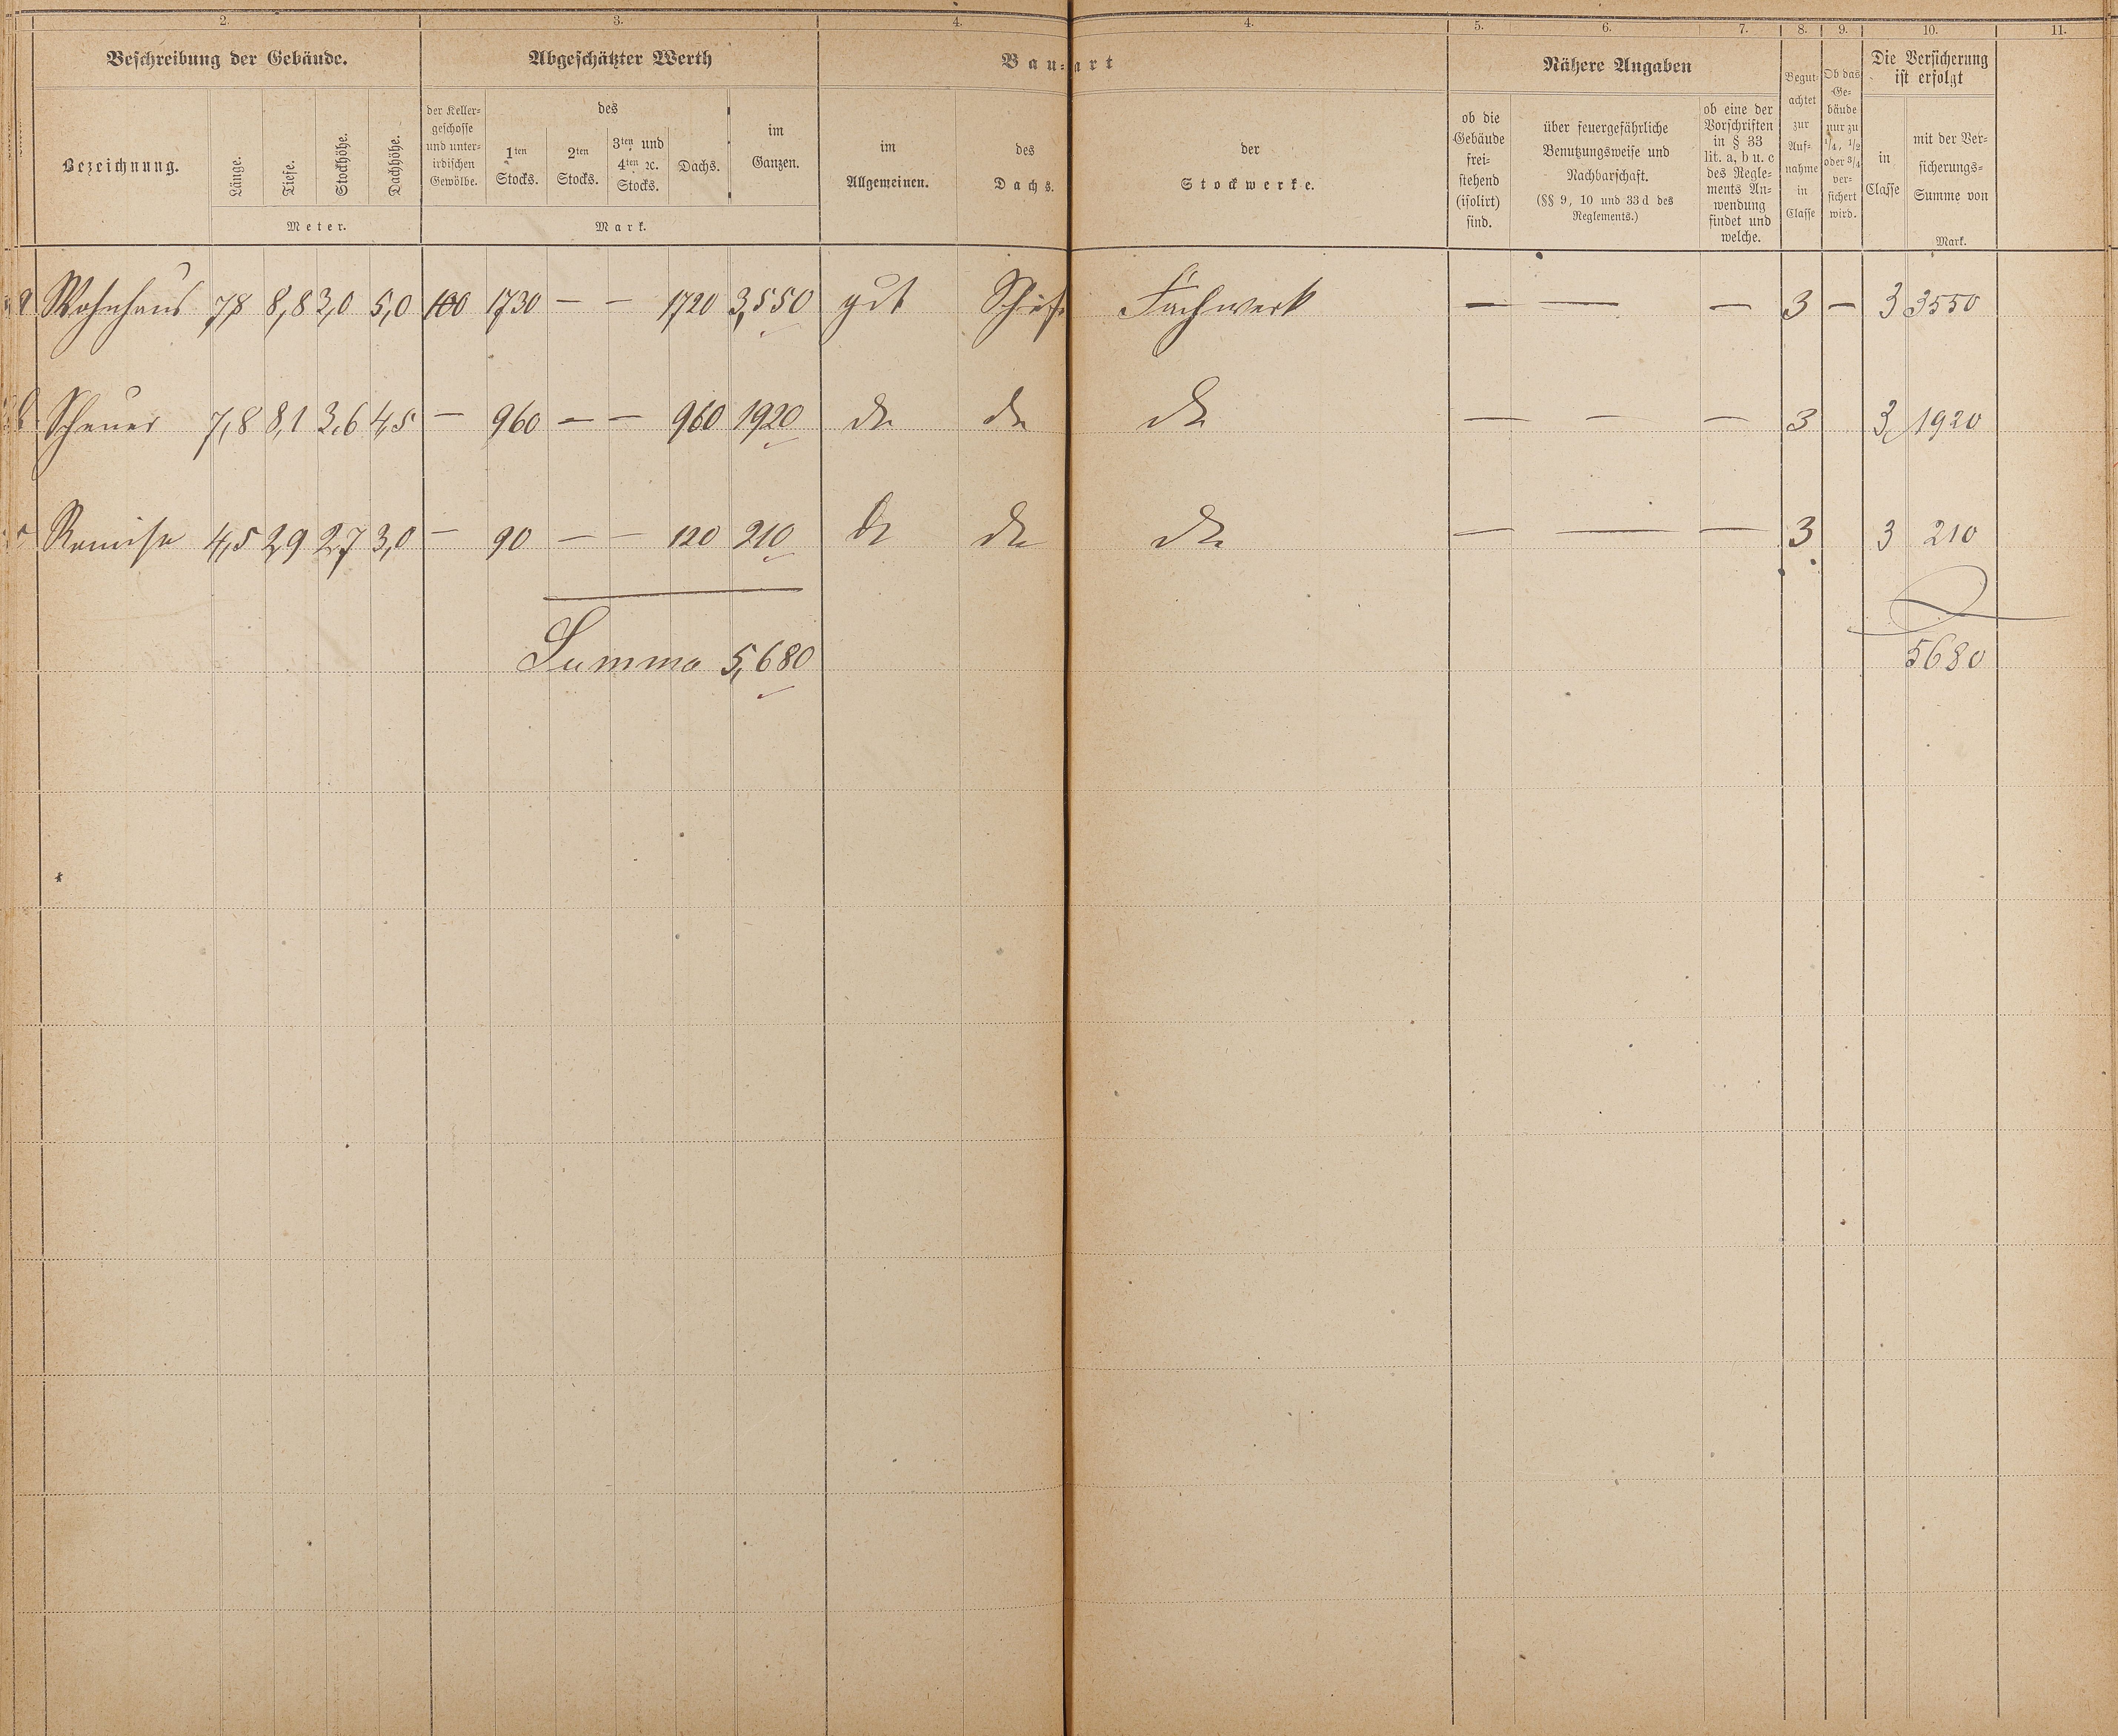 2. 3. 4. 4. 5. 6. 7. 8. 9. 10. 11.
Beschreibung der Gebäude.
Bezeichnung.
Länge.
Tiefe.
Stockhöhe.
Dachhöhe.
Meter.
Abgeschätzter Werth
der Keller-
geschosse
und unter-
irdischen
Gewölbe.
des
1ten
Stocks.
2ten
Stocks.
3ten und
4ten ꝛc.
Stocks.
Dachs.
im
Ganzen.
Mark.
Bau-art
im
Allgemeinen.
des
Dachs.
der
Stockwerke.
Nähere Angaben
ob die
Gebäude
frei-
stehend
(isolirt)
sind.
über feuergefährliche
Benutzungsweise und
Nachbarschaft.
(§§ 9, 10 und 33 d des
Reglements.)
ob eine der
Vorschriften
in § 33
lit. a, b u. c
des Regle-
ments An-
wendung
findet und
welche.
Begut-
achtet
zur
Auf-
nahme
in
Classe
Ob das
Ge-
bäude
nur zu
1/4, 1/2
oder 3/4
ver-
sichert
wird.
Die Versicherung
ist erfolgt
in
Classe
mit der Ver-
sicherungs-
Summe von
Mark.
a Wohnhaus 7,8 8,8 3,0 5,0 100 1730 — — 1720 3,550 gut Schief. Fachwerk — — — 3 — 3 3550
b Scheuer 7,8 8,1 3,6 4,5 — 960 — — 960 1920 do do do — — — 3 3 1920
c Remise 4,5 2,9 2,7 3,0 — 90 — — 120 210 do do do — — — 3 3 210
Summa 5,680 5680